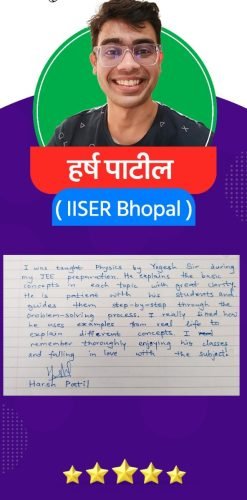 हर्ष पाटील
( IISER Bhopal )
I was taught Physics by Yogesh Sir during
my JEE preparation. He explains the basic
concepts in each topic with great clarity.
He is patient with his students and
guides them step-by-step through the
problem-solving process. I really liked how
he uses examples from real life to
explain different concepts. I
remember thoroughly enjoying his classes
and falling in love with the subject!
Harsh Patil